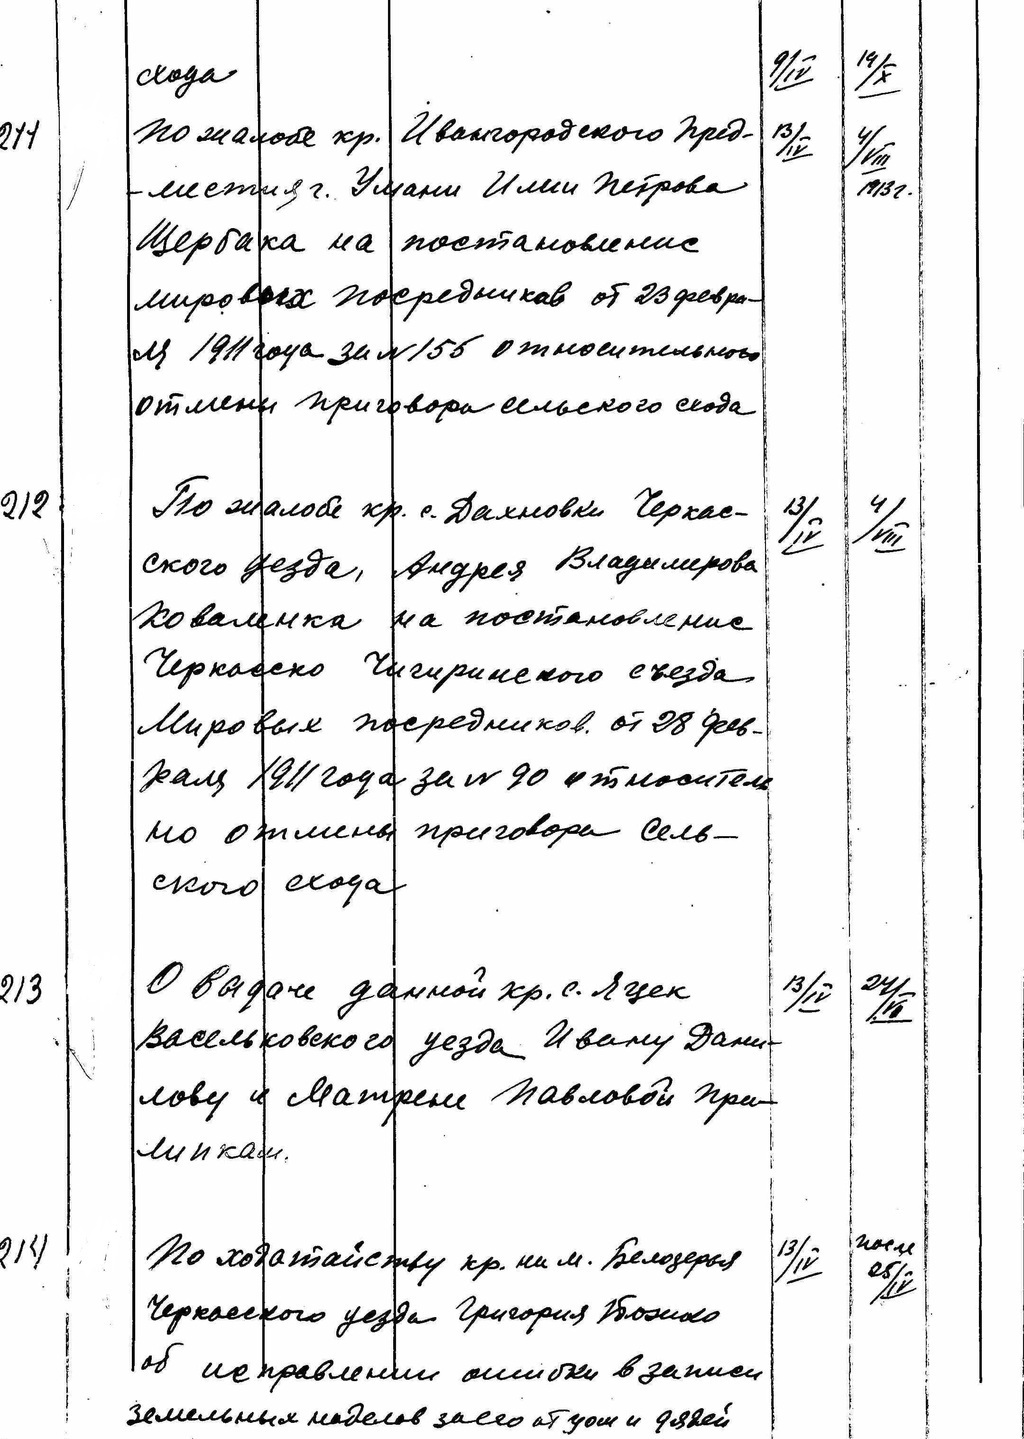 схода 9/IV 14/X
211 По жалобе кр. Ивангородского Пред- 13/IV 4/VIII 1913 г.
-местия г. Умани Илии Петрова
Щербака на постановление
мировых посредников от 23 февра-
ля 1911 года за № 155 относительного
отмены приговора сельского схода
212 По жалобе кр. с. Дахновки Черкас- 13/IV 4/VIII
ского уезда, Андрея Владимирова
Коваленка на постановление
Черкасско Чигиринского съезда
Мировых посредников от 28 фев-
раля 1911 года за № 90 относитель
но отмены приговора Сель-
ского схода
213 О выдаче данной кр. с. Яцек 13/IV 24/VII
Васельковского уезда Ивану Дани-
лову и Матрене Павловой При-
липкам.
214 По ходатайству кр. м. Белозерья 13/IV после 25/IV
Черкасского уезда Григория
об исправлении ошибки в записи
земельных наделов за его отцом и дядей